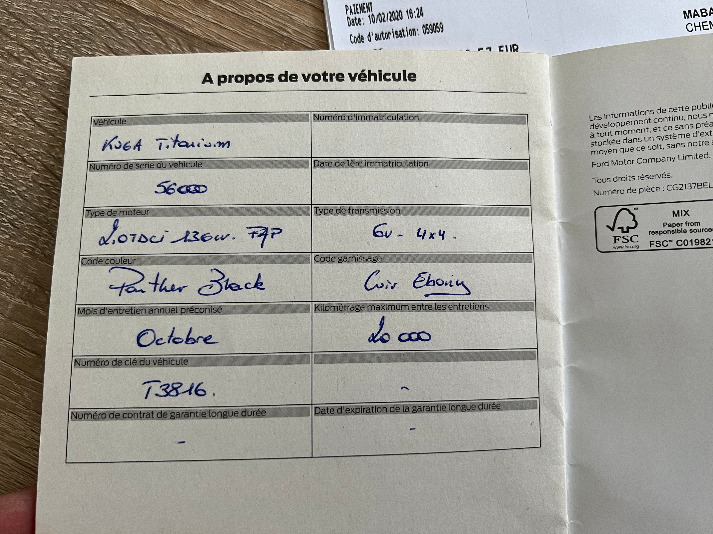 PAIEMENT
Date: 10/02/2020 16:24
Code d'autorisation: 059059
EUR
MABA
CHEN
A propos de votre véhicule
Véhicule
Numéro d'immatriculation
KUGA Titanium
Numéro de série du véhicule
Date de 1ère immatriculation
56000
Type de moteur
Type de transmission
2.0TDCi 136cv. FAP
6v - 4x4.
Code couleur
Code garnissage
Panther Black
Cuir Ebony
Mois d'entretien annuel préconisé
Kilométrage maximum entre les entretiens
Octobre
20 000
Numéro de clé du véhicule
T3816.
-
Numéro de contrat de garantie longue durée
Date d'expiration de la garantie longue durée
-
-
Les informations de cette publi
développement continu, nous
à tout moment, et ce sans préa
stockée dans un système d'ext
moyen que ce soit, sans notre a
Ford Motor Company Limited.
Tous droits réservés.
Numéro de pièce : CG2137BEL
FSC
www.fsc.org
MIX
Paper from
responsible sources
FSC® C019821